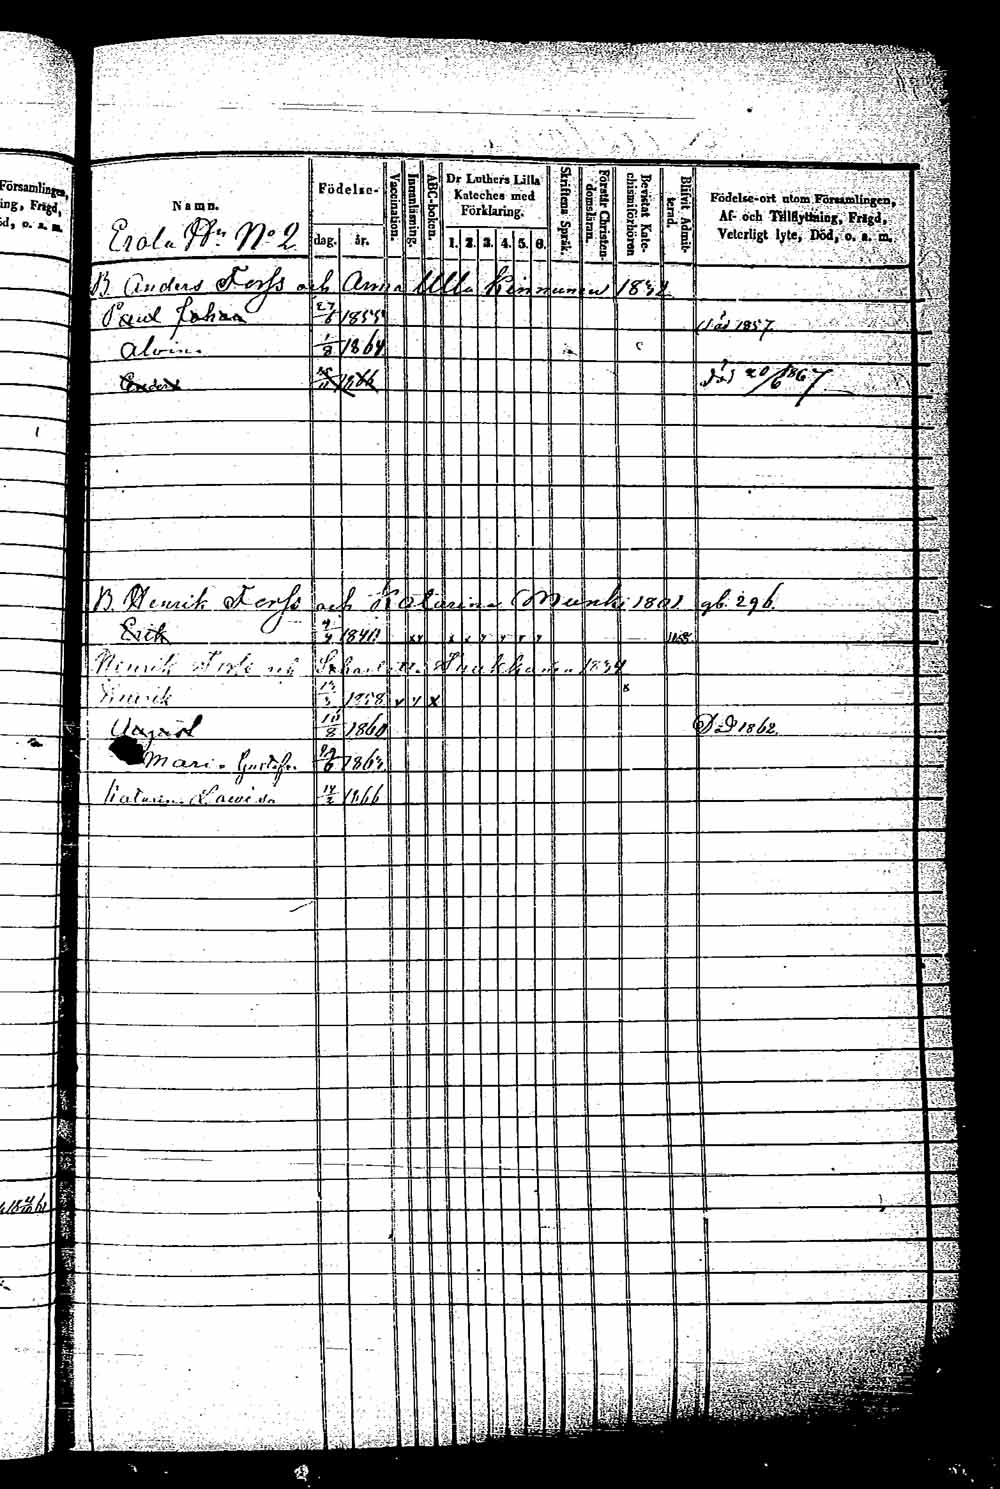 Församlingen,
ing, Frägd,
öd, o. a. m.
Namn.
Födelse-
dag. år.
Vaccination.
Innanläsning.
ABC-boken.
Dr Luthers Lilla
Kateches med
Förklaring.
1. 2. 3. 4. 5. 6.
Skriftens Språk.
Förstår Christen-
domsläran.
Bevistat Kate-
chismiförhören
Blifvit Admit-
terad.
Födelse-ort utom Församlingen,
Af- och Tillflyttning, Frägd,
Veterligt lyte, Död, o. a. m.
Erola No 2
B. Anders Forss och Anna Ulla Kinnunen 1832
Paul Johan 27/6 1855 död 1857.
Alvin 1/8 1864
1866 död 20/6 1867.
B. Henrik Forss och Katarina Munk 1801 gb. 296.
Erik 1840 x x x x y y y y
Henrik 1834
Henrik 13/3 1858 y y x
August 10/8 1860 Död 1862.
Maria Gustafva 29/6 1863
Katarina Lovisa 14/2 1866